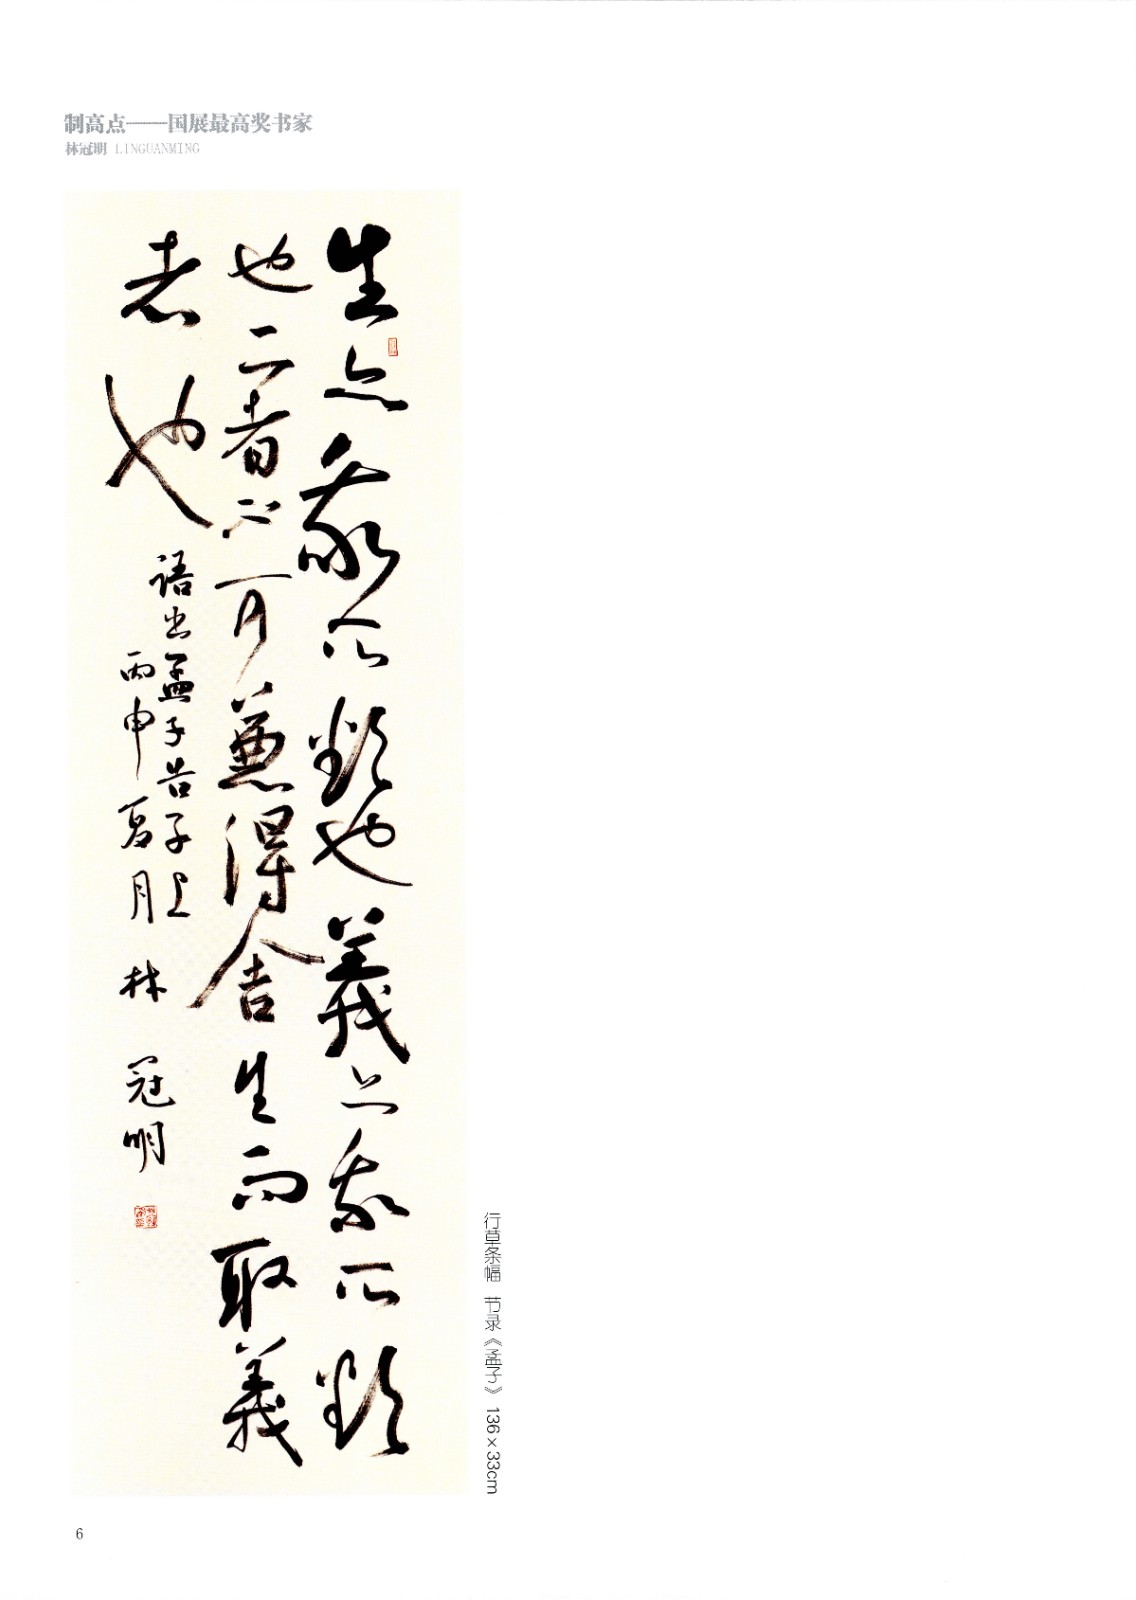 制高点——国展最高奖书家
林冠明 LINGUANMING
生亦我所欲也義亦我所欲
也二者不可兼得舍生而取義
者也
語出孟子告子上
丙申夏月 林冠明
行草条幅 节录《孟子》 136×33cm
6